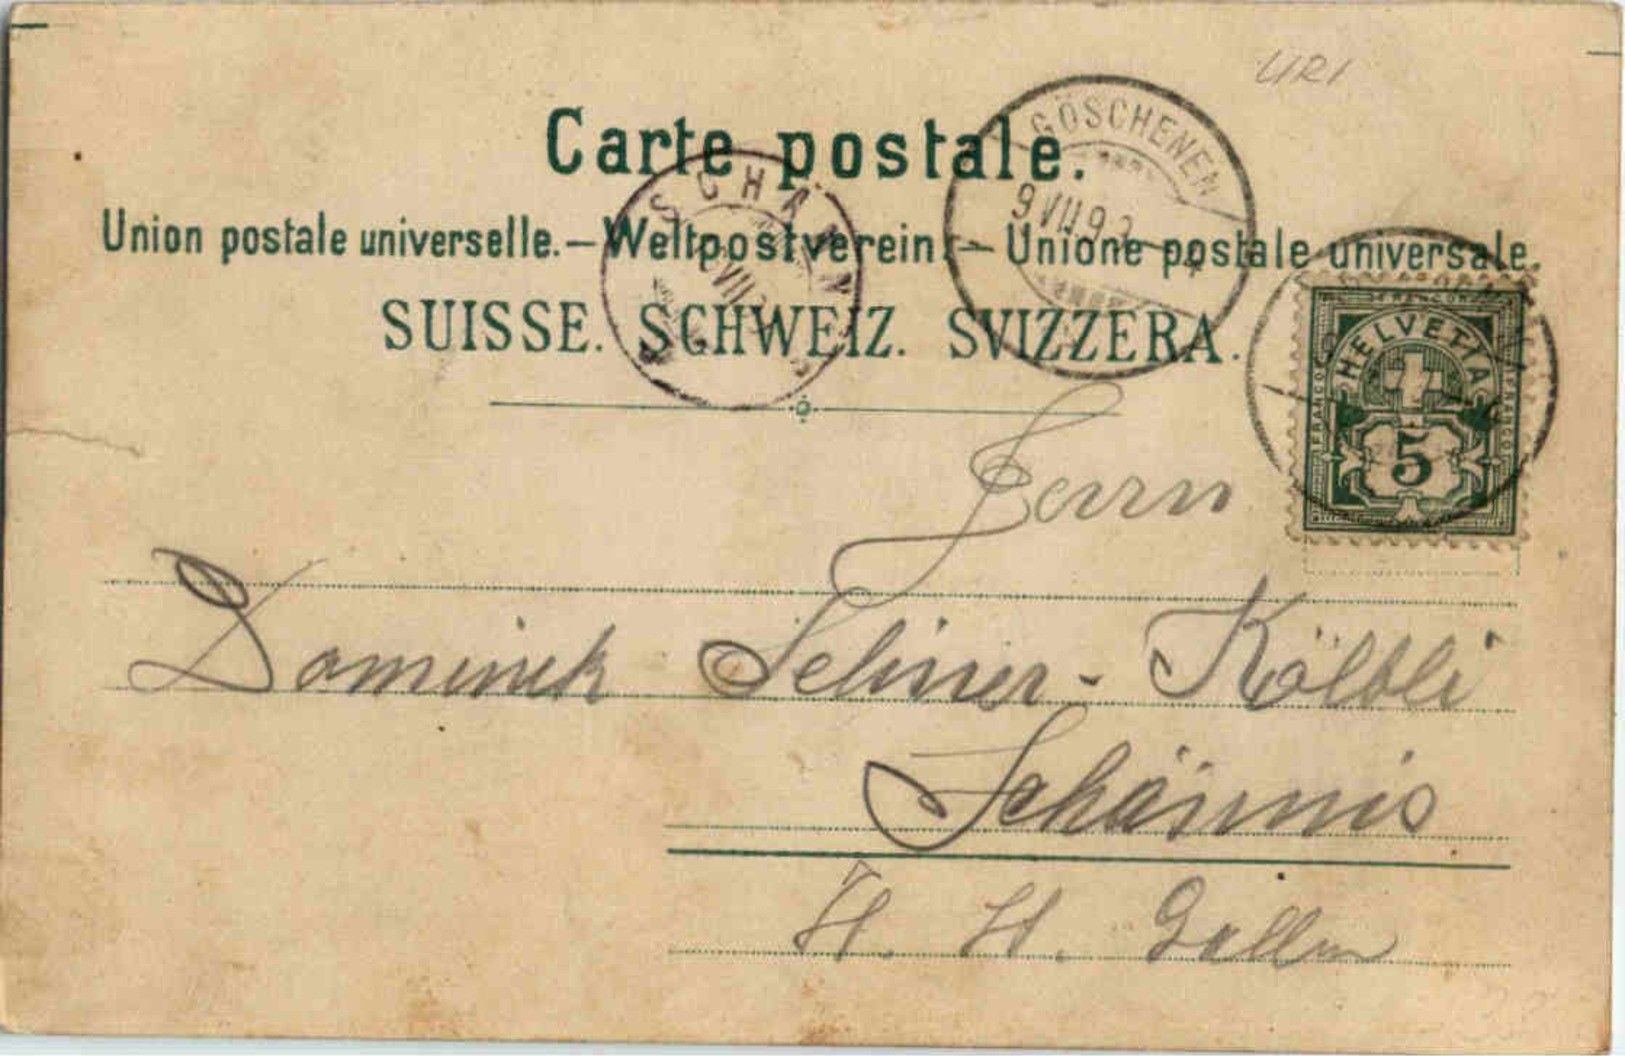 URI
Carte postale.
GÖSCHENEN
9 VII 9
SCHÄNN
VII
Union postale universelle. — Weltpostverein. — Unione postale universale.
SUISSE. SCHWEIZ. SVIZZERA.
HELVETIA
FRANCO
FRANCO
5
Herrn
Dominick - Kölbli
Schännis
Kt. St. Gallen